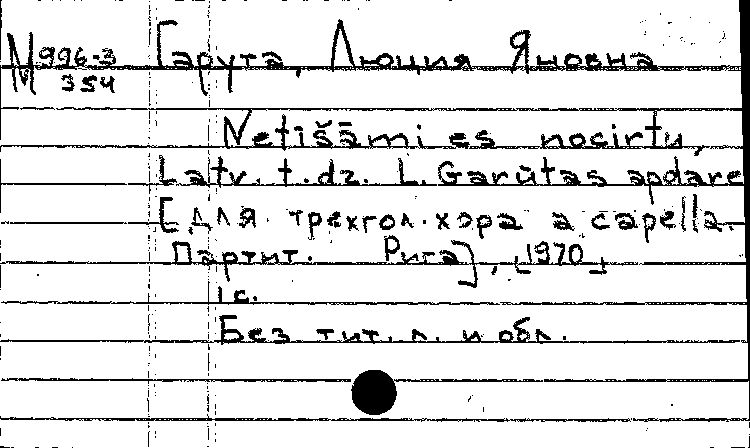 М 996-3 Гарута, Люция Яновна
354
Netīšāmi es nocirtu,
Latv. t.dz. L. Garūtas apdare
[для трехгол. хора a capella.
Партит. Рига], [1970]
1 с.
Без тит. л. и обл.